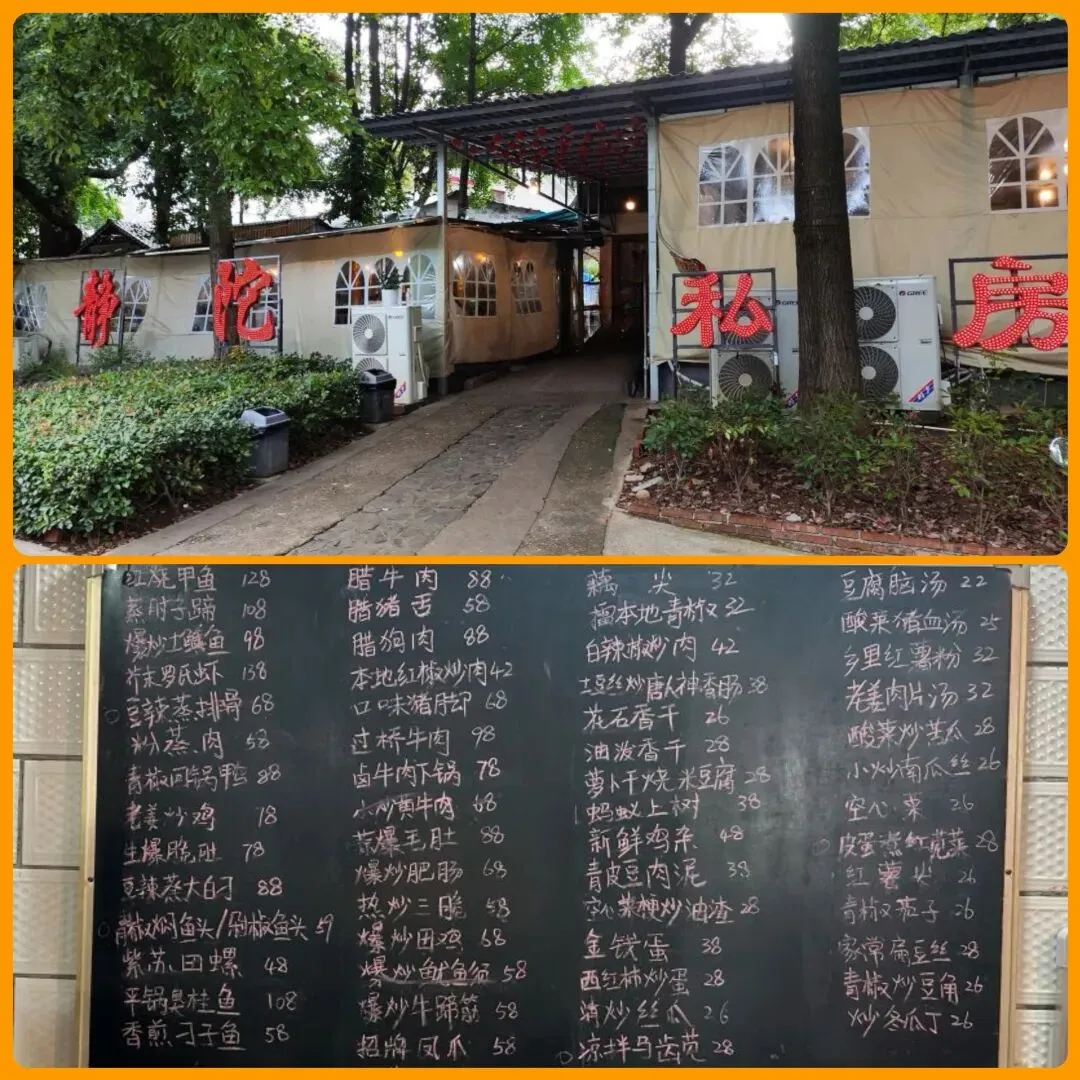 静
陀
私
房
GREE
红烧甲鱼 128
蒸肘子蹄 108
爆炒土鳝鱼 98
芥末罗氏虾 138
豆辣蒸排骨 68
粉蒸肉 58
青椒回锅鸭 88
老姜炒鸡 78
生爆脆肚 78
豆辣蒸大白刁 88
青椒焖鱼头/剁椒鱼头 59
紫苏田螺 48
平锅臭桂鱼 108
香煎刁子鱼 58
腊牛肉 88
腊猪舌 58
腊狗肉 88
本地红椒炒肉 42
口味猪脚 68
过桥牛肉 98
卤牛肉下锅 78
小炒黄牛肉 68
芫爆毛肚 88
爆炒肥肠 68
热炒三脆 58
爆炒田鸡 68
爆炒鱿鱼须 58
爆炒牛蹄筋 58
招牌凤爪 58
藕尖 32
本地青椒 32
白辣椒炒肉 42
土豆丝炒唐人神香肠 38
花石香干 26
油泼香干 28
萝卜干烧米豆腐 28
蚂蚁上树 38
新鲜鸡杂 48
青皮豆肉泥 38
空心菜梗炒油渣 28
金钱蛋 38
西红柿炒蛋 28
清炒丝瓜 26
凉拌马齿苋 28
豆腐脑汤 22
酸菜猪血汤 25
乡里红薯粉 32
老姜肉片汤 32
酸菜炒苦瓜 28
小炒南瓜丝 26
空心菜 26
皮蛋煮红苋菜 28
红薯尖 26
青椒茄子 26
家常扁豆丝 28
青椒炒豆角 26
炒冬瓜丁 26